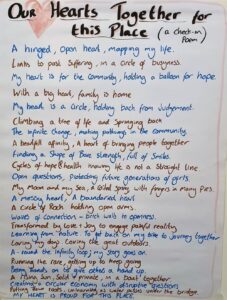 Our Hearts Together for
this Place (a check-in
Poem)
A hinged, open head, mapping my life.
Links to past suffering, in a circle of busyness
My heart is for the community, holding a balloon for hope
With a big heart, family is home
My heart is a circle, holding back from judgement.
Climbing a tree of life and Springing back
The infinite change, making pathways in the community.
A beautiful affinity, A heart of bringing people together
Finding a Shape of Bare Strength, full of Smiles.
Cycles of hope & knowing life is not a straight line
Open questions, protecting future generations of girls.
My Mum and my Sea, a wild spring with fingers in many pies.
A messy heart, A boundaried howl
A circle of Rock holding open arms,
Waves of Connection - brick walls to openness.
Transformed by love + Joy to engage painful reality
Learning from Nature to get back on my bike to journey together
Loving my dog: Loving the great outdoors.
A round the infinity loop; my story goes on.
Running life care, getting up to keep going
Being hands on to give others a hand up.
A Mama Sun, Solid & private, in a boat together
Creating a circular economy with disruptive questions
water under the bridge
MY HEART IS PROUD FOR THIS PLACE